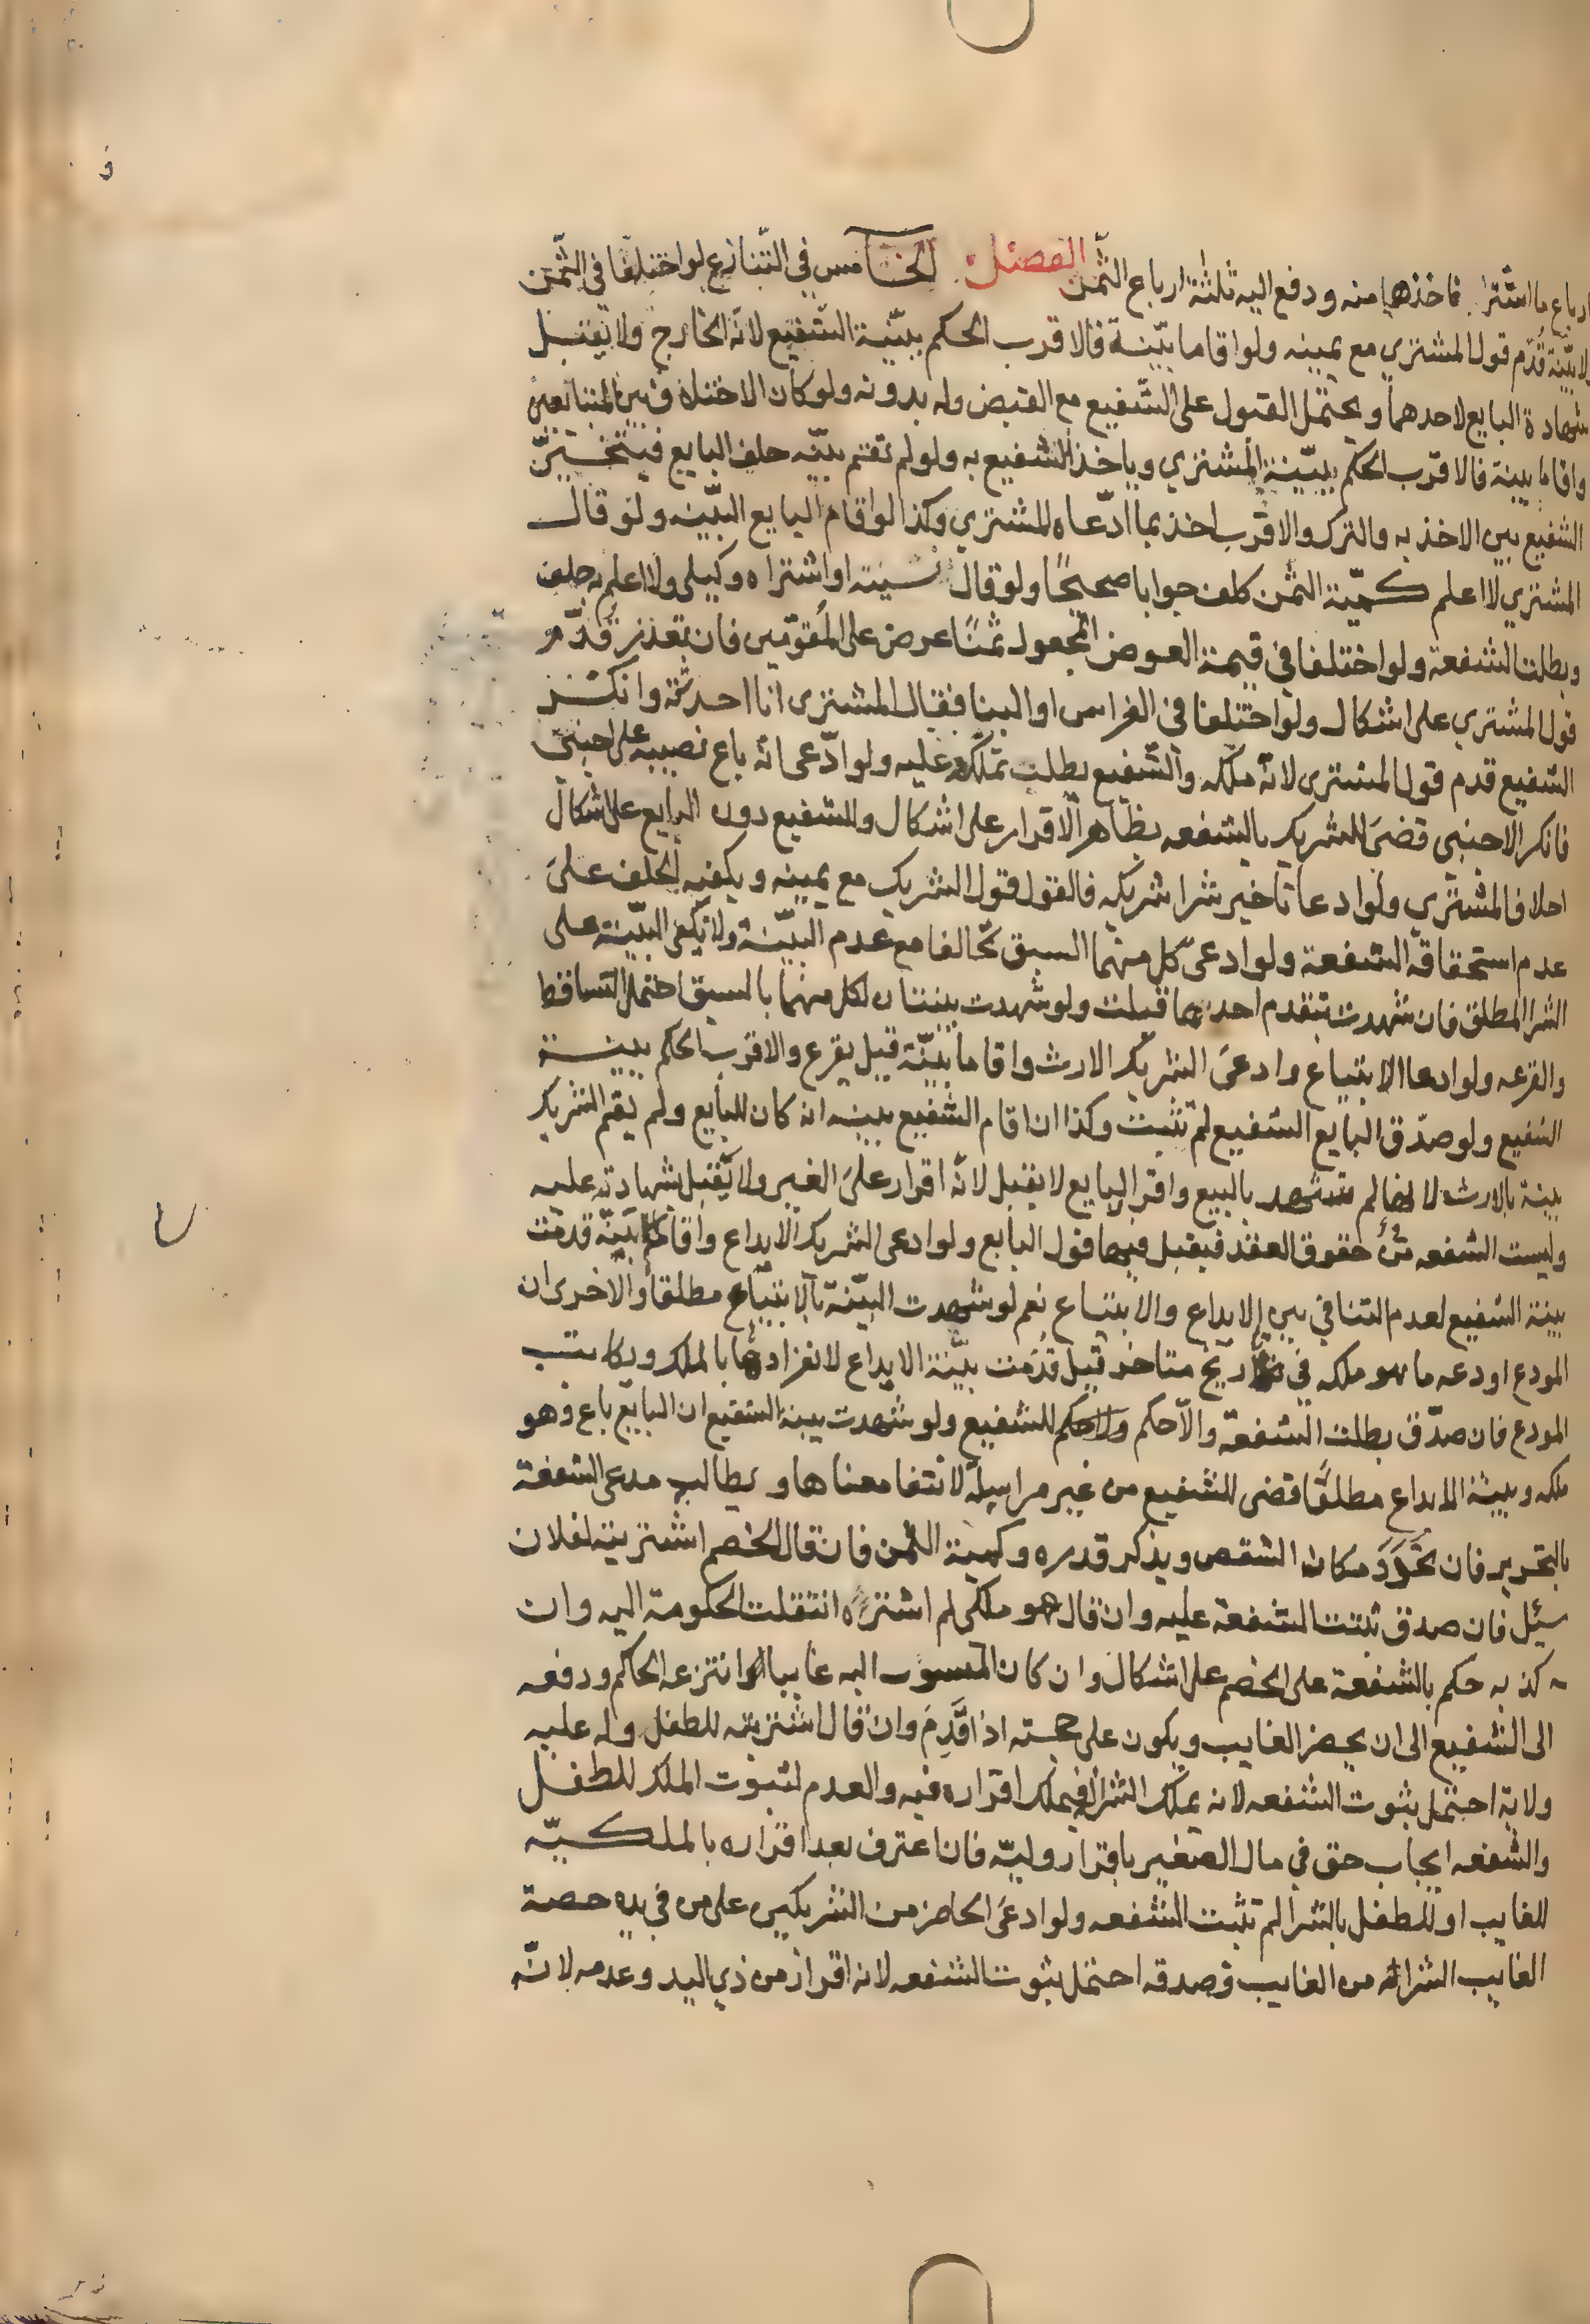 ارباع ما اشترا فاخذها منه ودفع اليه ثلثة ارباع الثمن الفصل الخامس في التنازع لو اختلفا في الثمن
ولا بيّنة قُدّم قول المشتري مع يمينه ولو اقاما بيّنة فالاقرب الحكم ببيّنة الشفيع لانّه الخارج ولا يقبل
شهادة البايع لاحدهما ويحتمل القبول على الشفيع مع القبض وله بدونه ولو كان الاختلاف بين المتبايعين
واقاما بينة فالاقرب الحكم ببيّنة المشتري وياخذ الشفيع به ولو لم تقم بيّنه حلف البايع فيتخيّر
الشفيع بين الاخذ به والترك والاقرب اخذ بما ادّعاه المشتري وكذا لو اقام البايع البيّنه ولو قال
المشتري لا اعلم كميّة الثمن كلف جوابا صحيحًا ولو قال نسيته او اشتراه وكيلي ولا اعلم به حلف
وبطلت الشفعة ولو اختلفا في قيمة العوض المجعول ثمنًا عرض على المقوّمين فان تعذر قدّم
قول المشتري على اشكال ولو اختلفا في الغراس او البنا فقال المشتري انا احدثته وانكر
الشفيع قدم قول المشتري لانّه ملكه والشفيع يطلب تملّكه عليه ولو ادّعى انّه باع نصيبه على اجنبي
فانكر الاجنبي قضى للشريك بالشفعه بظاهر الاقرار على اشكال وللشفيع دون البايع على اشكال
احلاف المشتري ولو ادعا تاخير شرا شريكه فالقول قول الشريك مع يمينه ويكفيه الحلف على
عدم استحقاقه الشفعة ولو ادعى كل منهما السبق تحالفا مع عدم البيّنة ولا يكفي البيّنة على
الشرا المطلق فان شهدت بتقدم احدهما قبلت ولو شهدت بينتان لكل منهما بالسبق احتمل التساقط
والقرعه ولو ادعا الابتياع وادعى الشريك الارث واقاما بيّنة قيل يقرع والاقرب الحكم ببينة
الشفيع ولو صدّق البايع الشفيع لم تثبت وكذا ان اقام الشفيع بينه انه كان للبايع ولم يقم الشريك
بينة بالارث لانها لم تشهد بالبيع واقرار البايع لا يقبل لانّه اقرار على الغير ولا يقبل شهادته عليه
وليست الشفعه من حقوق العقد فيقبل فيها قول البايع ولو ادعى الشريك الايداع واقاما بيّنة قدمت
بينة الشفيع لعدم التنافي بين الايداع والابتياع نعم لو شهدت البيّنة بالابتياع مطلقا والاخرى ان
المودع اودعه ما هو ملكه في تاريخ متاخر قيل قدّمت بيّنة الايداع لانفرادها بالملك ويكاتب
المودع فان صدّق بطلت الشفعة والّا حكم للشفيع ولو شهدت بينة الشفيع ان البايع باع وهو
ملكه وبينة الايداع مطلقًا قضى للشفيع من غير مراسلة لانتفا معناها ويطالب مدعي الشفعة
بالتحرير فان يحدّد مكان الشقص ويذكر قدره وكمية الثمن فان قال الخصم اشتريته لفلان
سئل فان صدق ثبتت الشفعة عليه وان قال هو ملكي لم اشتره انتقلت الحكومة اليه وان
كذبه حكم بالشفعة على الخصم على اشكال وان كان المنسوب اليه غايبا انتزعه الحاكم ودفعه
الى الشفيع الى ان يحضر الغايب ويكون على حجته اذا قَدِمَ وان قال اشتريته للطفل وله عليه
ولاية احتمل ثبوت الشفعه لانه يملك الشرا فيملك اقراره فيه والعدم لثبوت الملك للطفل
والشفعه ايجاب حق في مال الصغير باقرار وليّه فان اعترف بعد اقراره بالملكيّه
للغايب او للطفل بالشرا لم تثبت الشفعه ولو ادعى الحاضر من الشريكين على من في يده حصة
الغايب الشرائه من الغايب فصدقه احتمل ثبوت الشفعه لانه اقرار من ذي اليد وعدمه لانّه